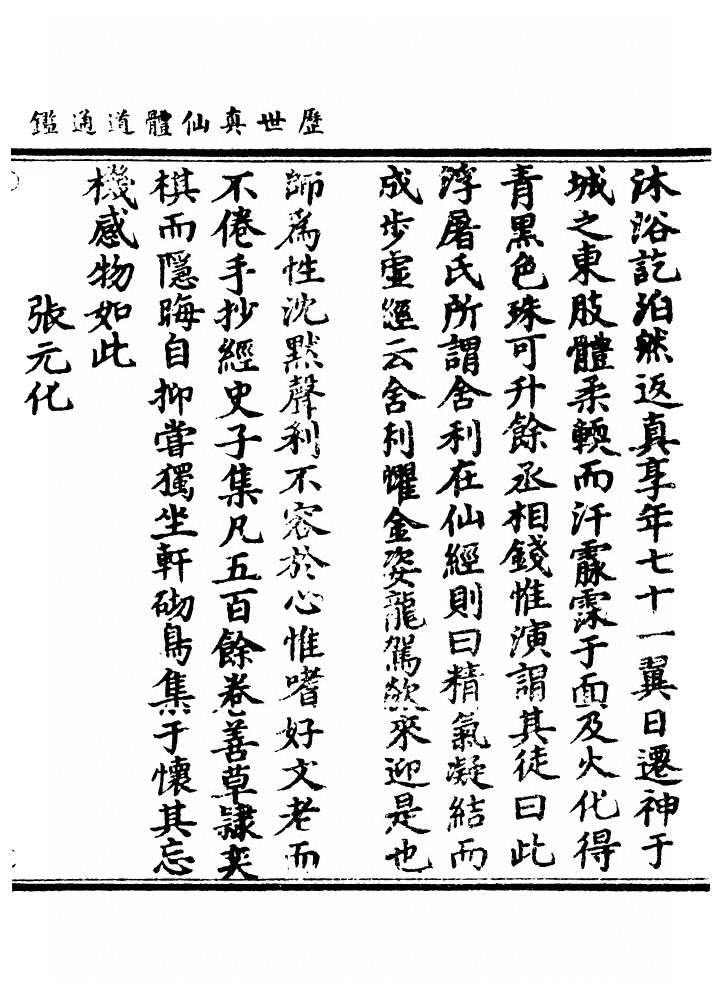 歷世真仙體道通鑑
沐浴訖泊然返真享年七十一翼日遷神于
城之東肢體柔輭而汗霡霂于面及火化得
青黑色珠可升餘丞相錢惟演謂其徒曰此
浮屠氏所謂舍利在仙經則曰精氣凝結而
成步虛經云舍利耀金姿龍駕欻來迎是也
師為性沈默聲利不容於心惟嗜好文老而
不倦手抄經史子集凡五百餘卷善草隷奕
棋而隱晦自抑嘗獨坐軒砌鳥集于懷其忘
機感物如此
張元化